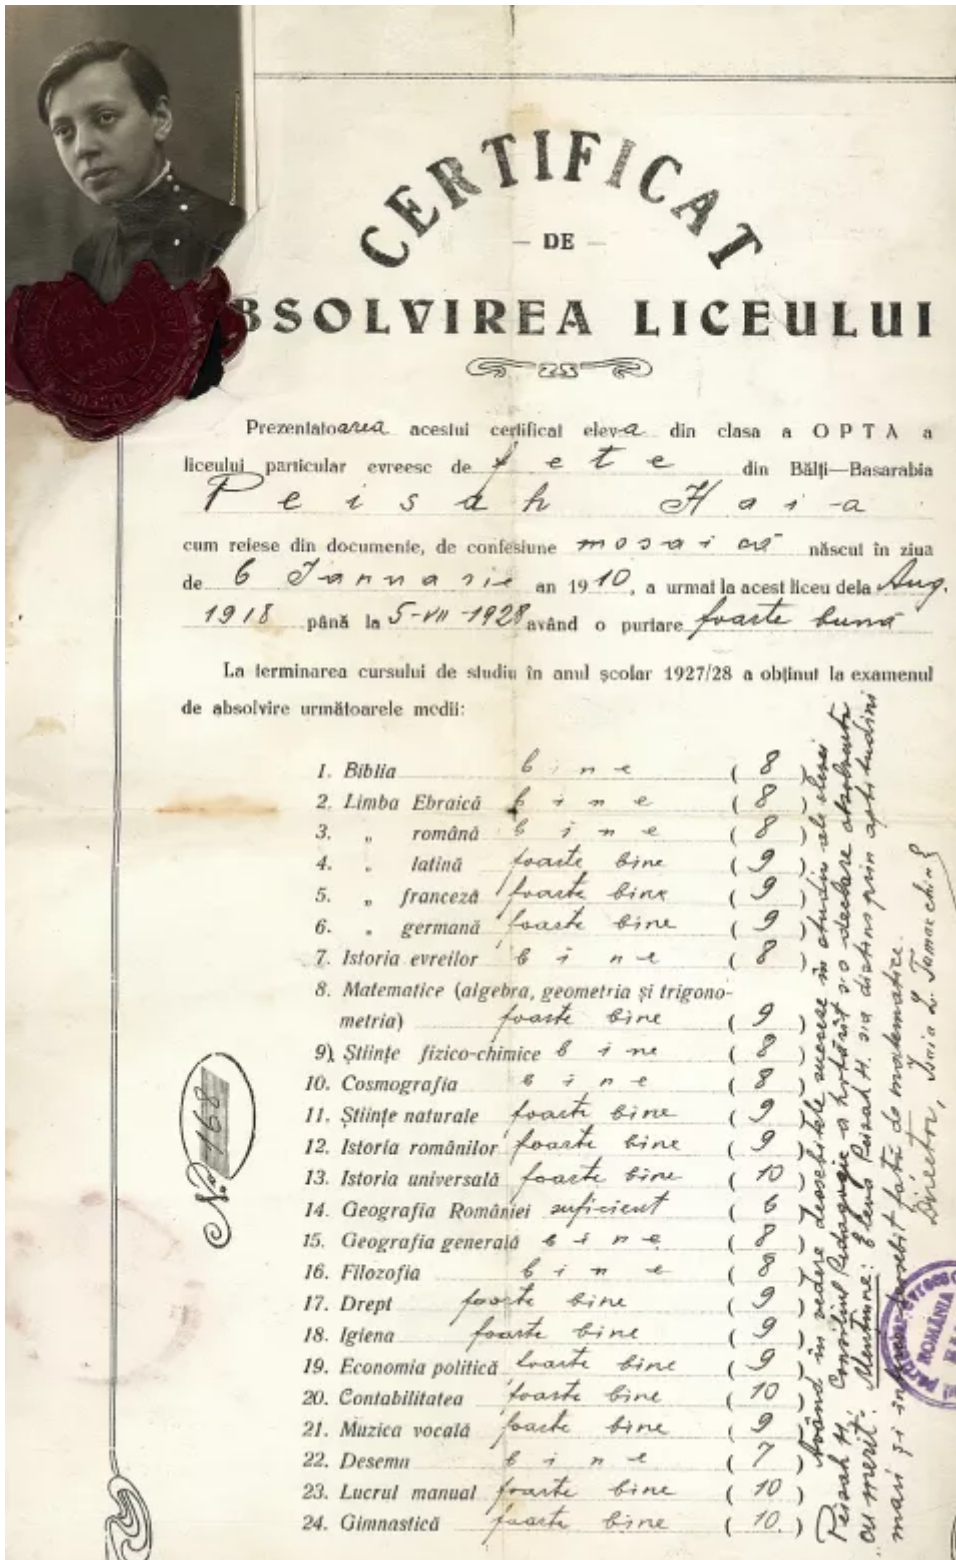 CERTIFICAT
— DE —
BSOLVIREA LICEULUI
Prezentatoarea acestui certificat eleva din clasa a OPTA a
liceului particular evreesc de fete din Bălți—Basarabia
Peisah Haia
cum reiese din documente, de confesiune mosaică născut în ziua
de 6 Ianuarie an 1910, a urmat la acest liceu dela Aug.
1918 până la 5-VII-1928 având o purtare foarte bună
La terminarea cursului de studiu în anul școlar 1927/28 a obținut la examenul
de absolvire următoarele medii:
1. Biblia bine (8)
2. Limba Ebraică bine (8)
3. „ română bine (8)
4. „ latină foarte bine (9)
5. „ franceză foarte bine (9)
6. „ germană foarte bine (9)
7. Istoria evreilor bine (8)
8. Matematice (algebra, geometria și trigono-
metria) foarte bine (9)
9) Științe fizico-chimice bine (8)
10. Cosmografia bine (8)
11. Științe naturale foarte bine (9)
12. Istoria românilor foarte bine (9)
13. Istoria universală foarte bine (10)
14. Geografia României suficient (6)
15. Geografia generală bine (8)
16. Filozofia bine (8)
17. Drept foarte bine (9)
18. Igiena foarte bine (9)
19. Economia politică foarte bine (9)
20. Contabilitatea foarte bine (10)
21. Muzica vocală foarte bine (9)
22. Desemn bine (7)
23. Lucrul manual foarte bine (10)
24. Gimnastică foarte bine (10.)
No. 168
Având în vedere deosebitele succese în studiu ale elevei
Peisah H. Consiliul Pedagogic a hotărît s'o declare absolventă
"cu merit". Mențiune: Eleva Peisah H. s'a distins prin aptitudini
mari și interes deosebit față de matematice.
Director,
ROMÂNIA